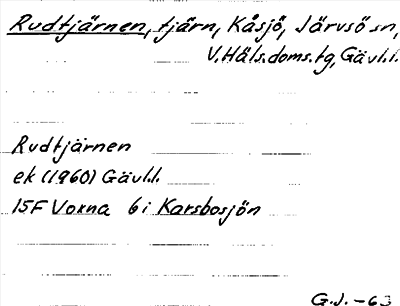 Rudtjärnen, tjärn, Kåsjö, Järvsö sn,
V. Häls. doms. tg, Gävl. l.
Rudtjärnen
ek (1960) Gävl.l.
15F Voxna 6i Karsbosjön
G.J. -63